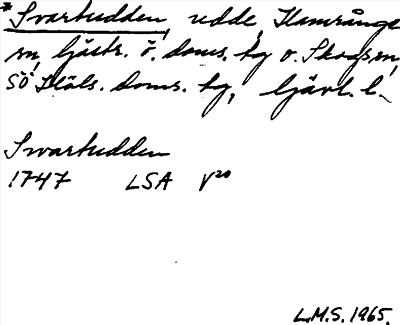 * Svartudden, udde, Hamrånge
sn, Gästr. ö. doms. hg o. Skogs sn,
SÖ Häls. doms. hg, Gävl. l.
Swartudden
1747 LSA V20
L.M.S. 1965.